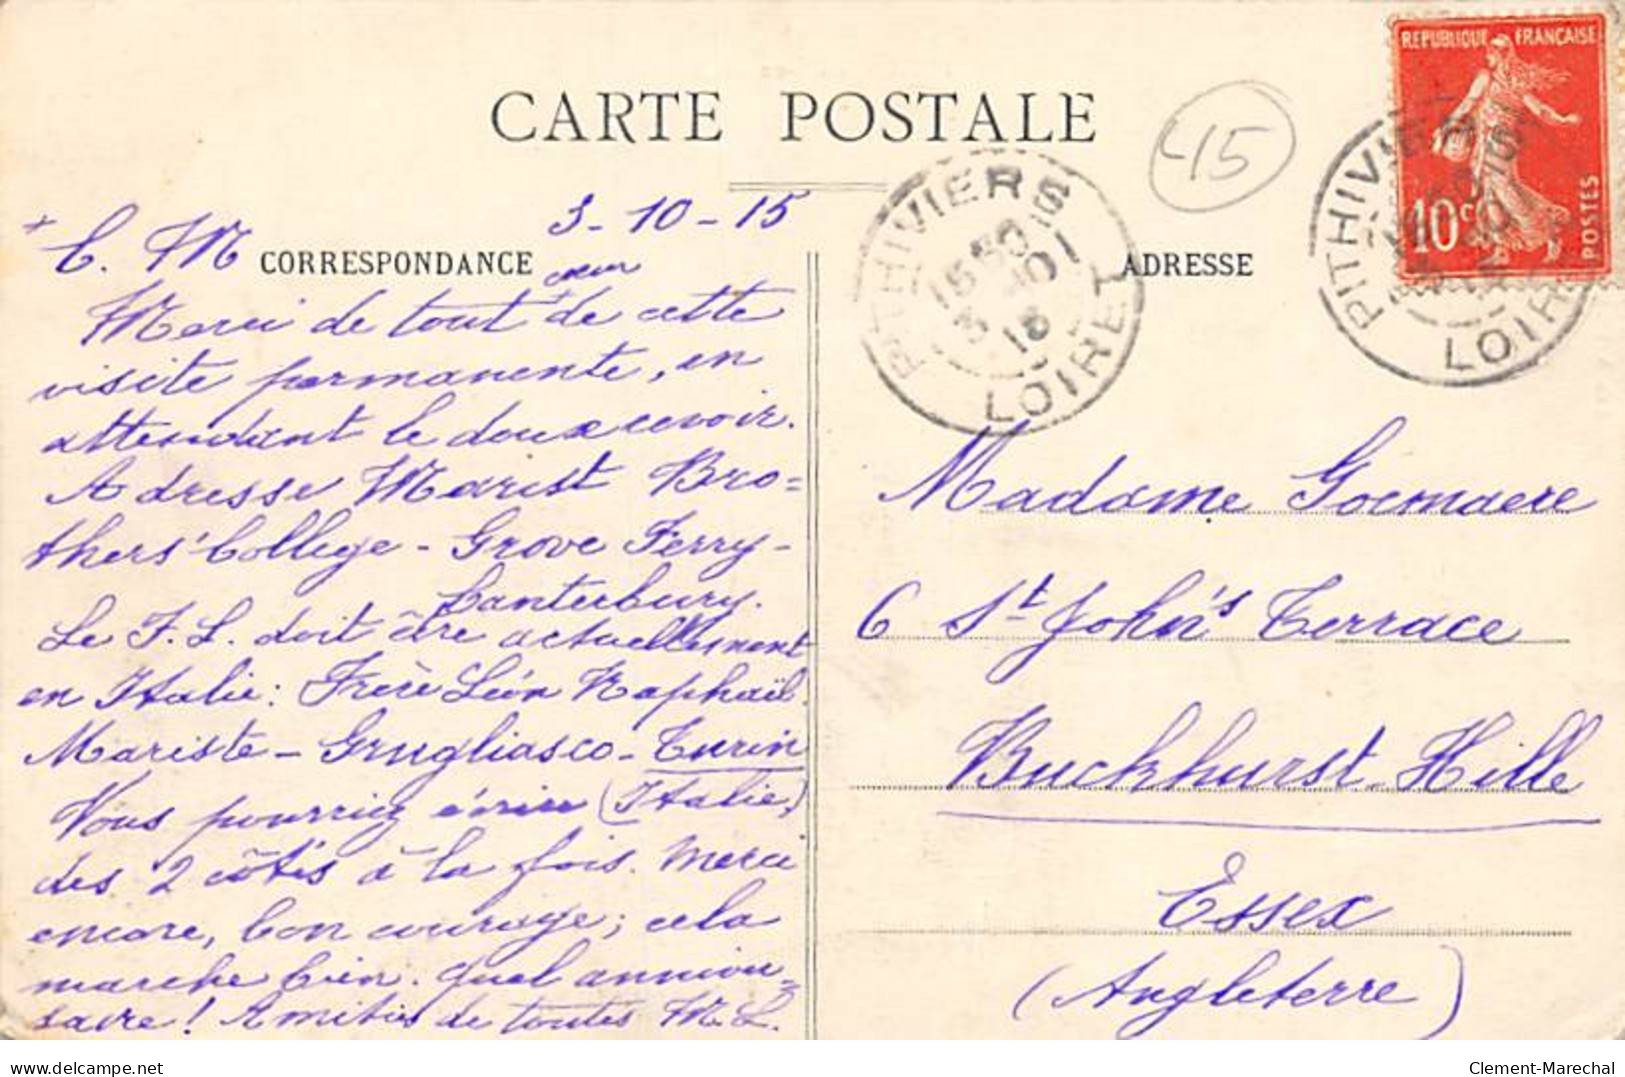 CARTE POSTALE
45
3-10-15
+ C. M
CORRESPONDANCE
cœur
Merci de tout de cette
visite permanente, en
attendant le doux revoir.
Adresse Marist Bro=
thers' College - Grove Ferry -
Canterbury.
Le F. L. doit être actuellement
en Italie: Frère Léon Raphaël.
Mariste - Grugliasco - Turin
Vous pourriez écrire (Italie)
des 2 côtés à la fois. Merci
encore, bon courage; cela
marche bien. Quel anniver=
saire! Amitiés de toutes M. L.
PITHIVIERS
15 50
3 -10
15
LOIRET
REPUBLIQUE FRANÇAISE
10c
POSTES
PITHIVIERS
LOIRET
ADRESSE
Madame Goemaere
6 St John's Terrace
Buckhurst-Hille
Essex
(Angleterre)
delcampe.net
Clement-Marechal